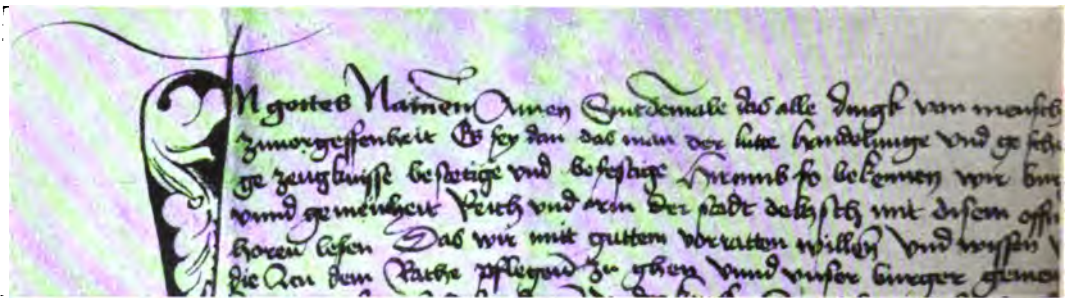 IN gottes Namen Amen Sintdemale das alle dingk von mensch
zuvorgessenheit Es sey dan das man der lutte handelunge vnd gesche
ge zeugknisse bestetige vnd befestige Hirumb so bekennen wir bur
vnnd gemeinheit Reich vnd arm der stadt delitzsch mit disem offn
horen lesen Das wir mitt guttem vorratten willen vnd wissen
die Zcu dem Rathe pflegen zu ghen vnnd vnser burger gemei